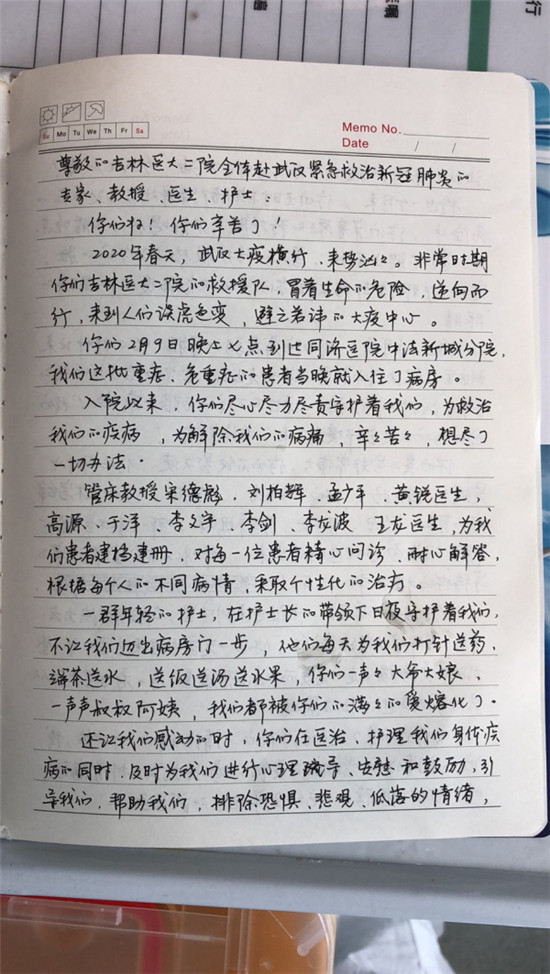 行
Su Mo Tu We Th Fr Sa
Memo No.
Date / /
尊敬的吉林医大二院全体赴武汉紧急救治新冠肺炎的
专家、教授、医生、护士：
你们好！你们辛苦了！
2020年春天，武汉大疫横行，来势汹々。非常时期
你们吉林医大二院的救援队，冒着生命的危险，逆向而
行，来到人们谈虎色变，避之若讳的大疫中心。
你们2月9日晚上七点到达同济医院中法新城分院，
我们这批重症、危重症的患者当晚就入住了病房。
入院以来，你们尽心尽力尽责守护着我们，为救治
我们的疫病，为解除我们的病痛，辛々苦々，想尽了
一切办法。
管床教授宋德彪、刘柏辉、孟少平、黄锐医生，
高源、于洋、李文宇、李剑、李龙波、王友医生，为我
们患者建档建册，对每一位患者精心问诊、耐心解答，
根据每个人的不同病情，采取个性化的治疗。
一群年轻的护士，在护士长的带领下日夜守护着我们，
不让我们迈出病房门一步，他们每天为我们打针送药，
端茶送水，送饭送汤送水果，你们一声々大爷大娘、
一声声叔叔阿姨，我们都被你们的满々的爱熔化了。
还让我们感动的时，你们在医治、护理我们身体疾
病的同时，及时为我们进行心理疏导、安慰和鼓励，引
导我们，帮助我们，排除恐惧、悲观、低落的情绪，